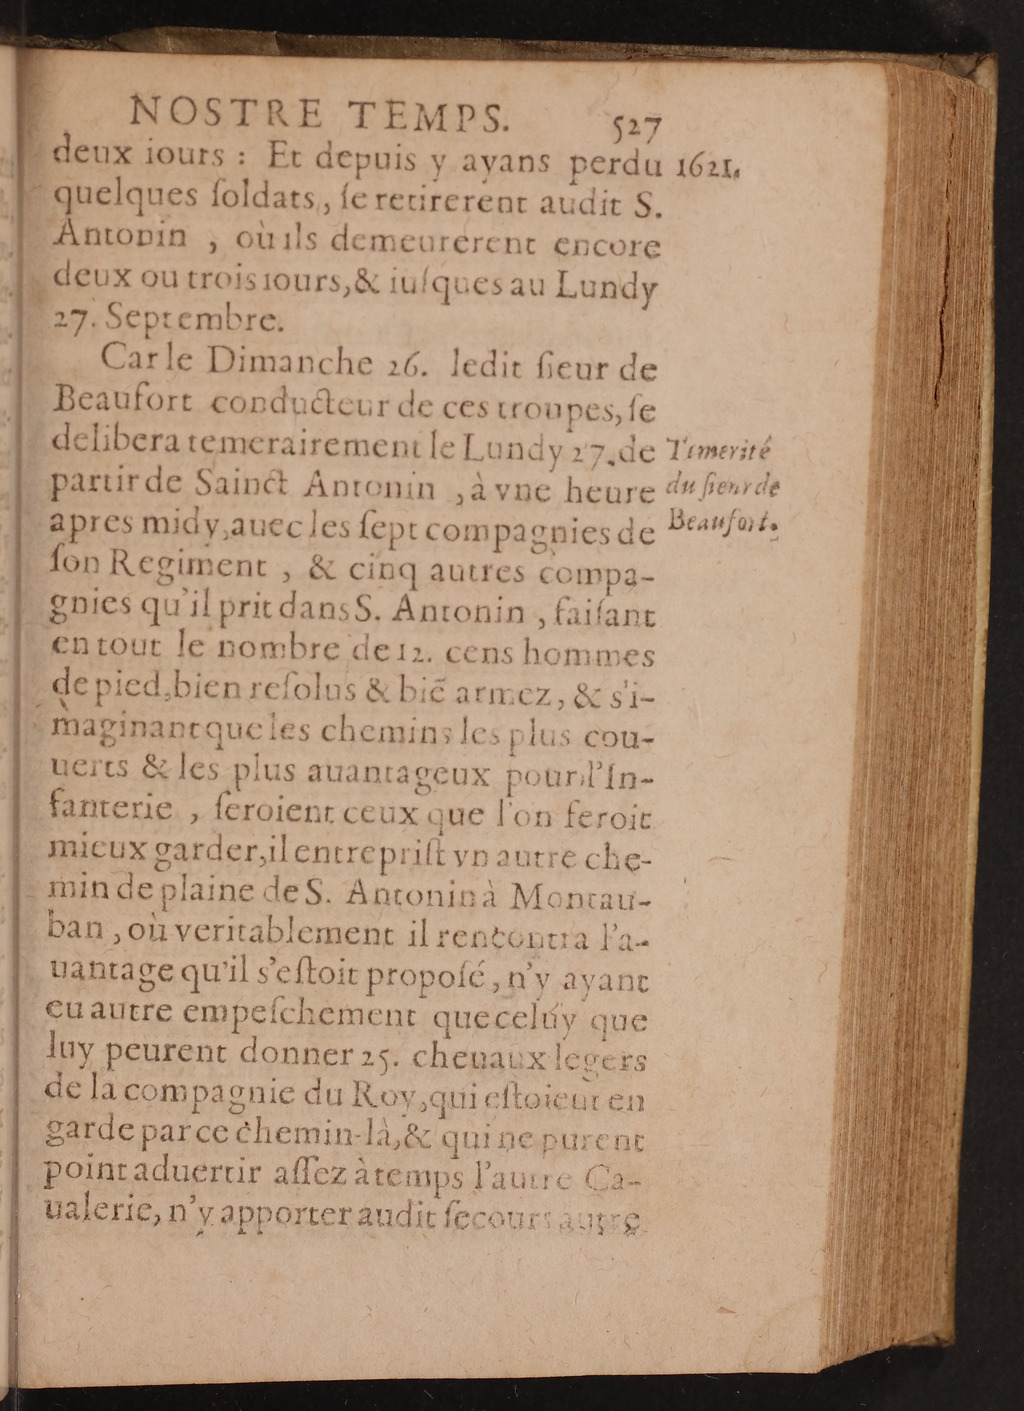 NOSTRE TEMPS. 527
deux iours : Et depuis y ayans perdu 1621.
quelques ſoldats, ſe retirerent audit S.
Antonin , où ils demeurerent encore
deux ou trois iours, & iuſques au Lundy
27. Septembre.
Car le Dimanche 26. ledit ſieur de
Beaufort conducteur de ces troupes, ſe
delibera temerairement le Lundy 27. de
partir de Sainct Antonin , à vne heure
apres midy, auec les ſept compagnies de
ſon Regiment , & cinq autres compa-
gnies qu'il prit dans S. Antonin , faiſant
en tout le nombre de 12. cens hommes
de pied, bien reſolus & biē armez, & s'i-
maginant que les chemins les plus cou-
uerts & les plus auantageux pour l'In-
fanterie , ſeroient ceux que l'on feroit
mieux garder, il entrepriſt vn autre che-
min de plaine de S. Antonin à Montau-
ban , où veritablement il rencontra l'a-
uantage qu'il s'eſtoit propoſé, n'y ayant
eu autre empeſchement que celuy que
luy peurent donner 25. cheuaux legers
de la compagnie du Roy, qui eſtoient en
garde par ce chemin-là, & qui ne purent
point aduertir aſſez à temps l'autre Ca-
ualerie, n'y apporter audit ſecours autre
Temerité
du ſieur de
Beaufort.